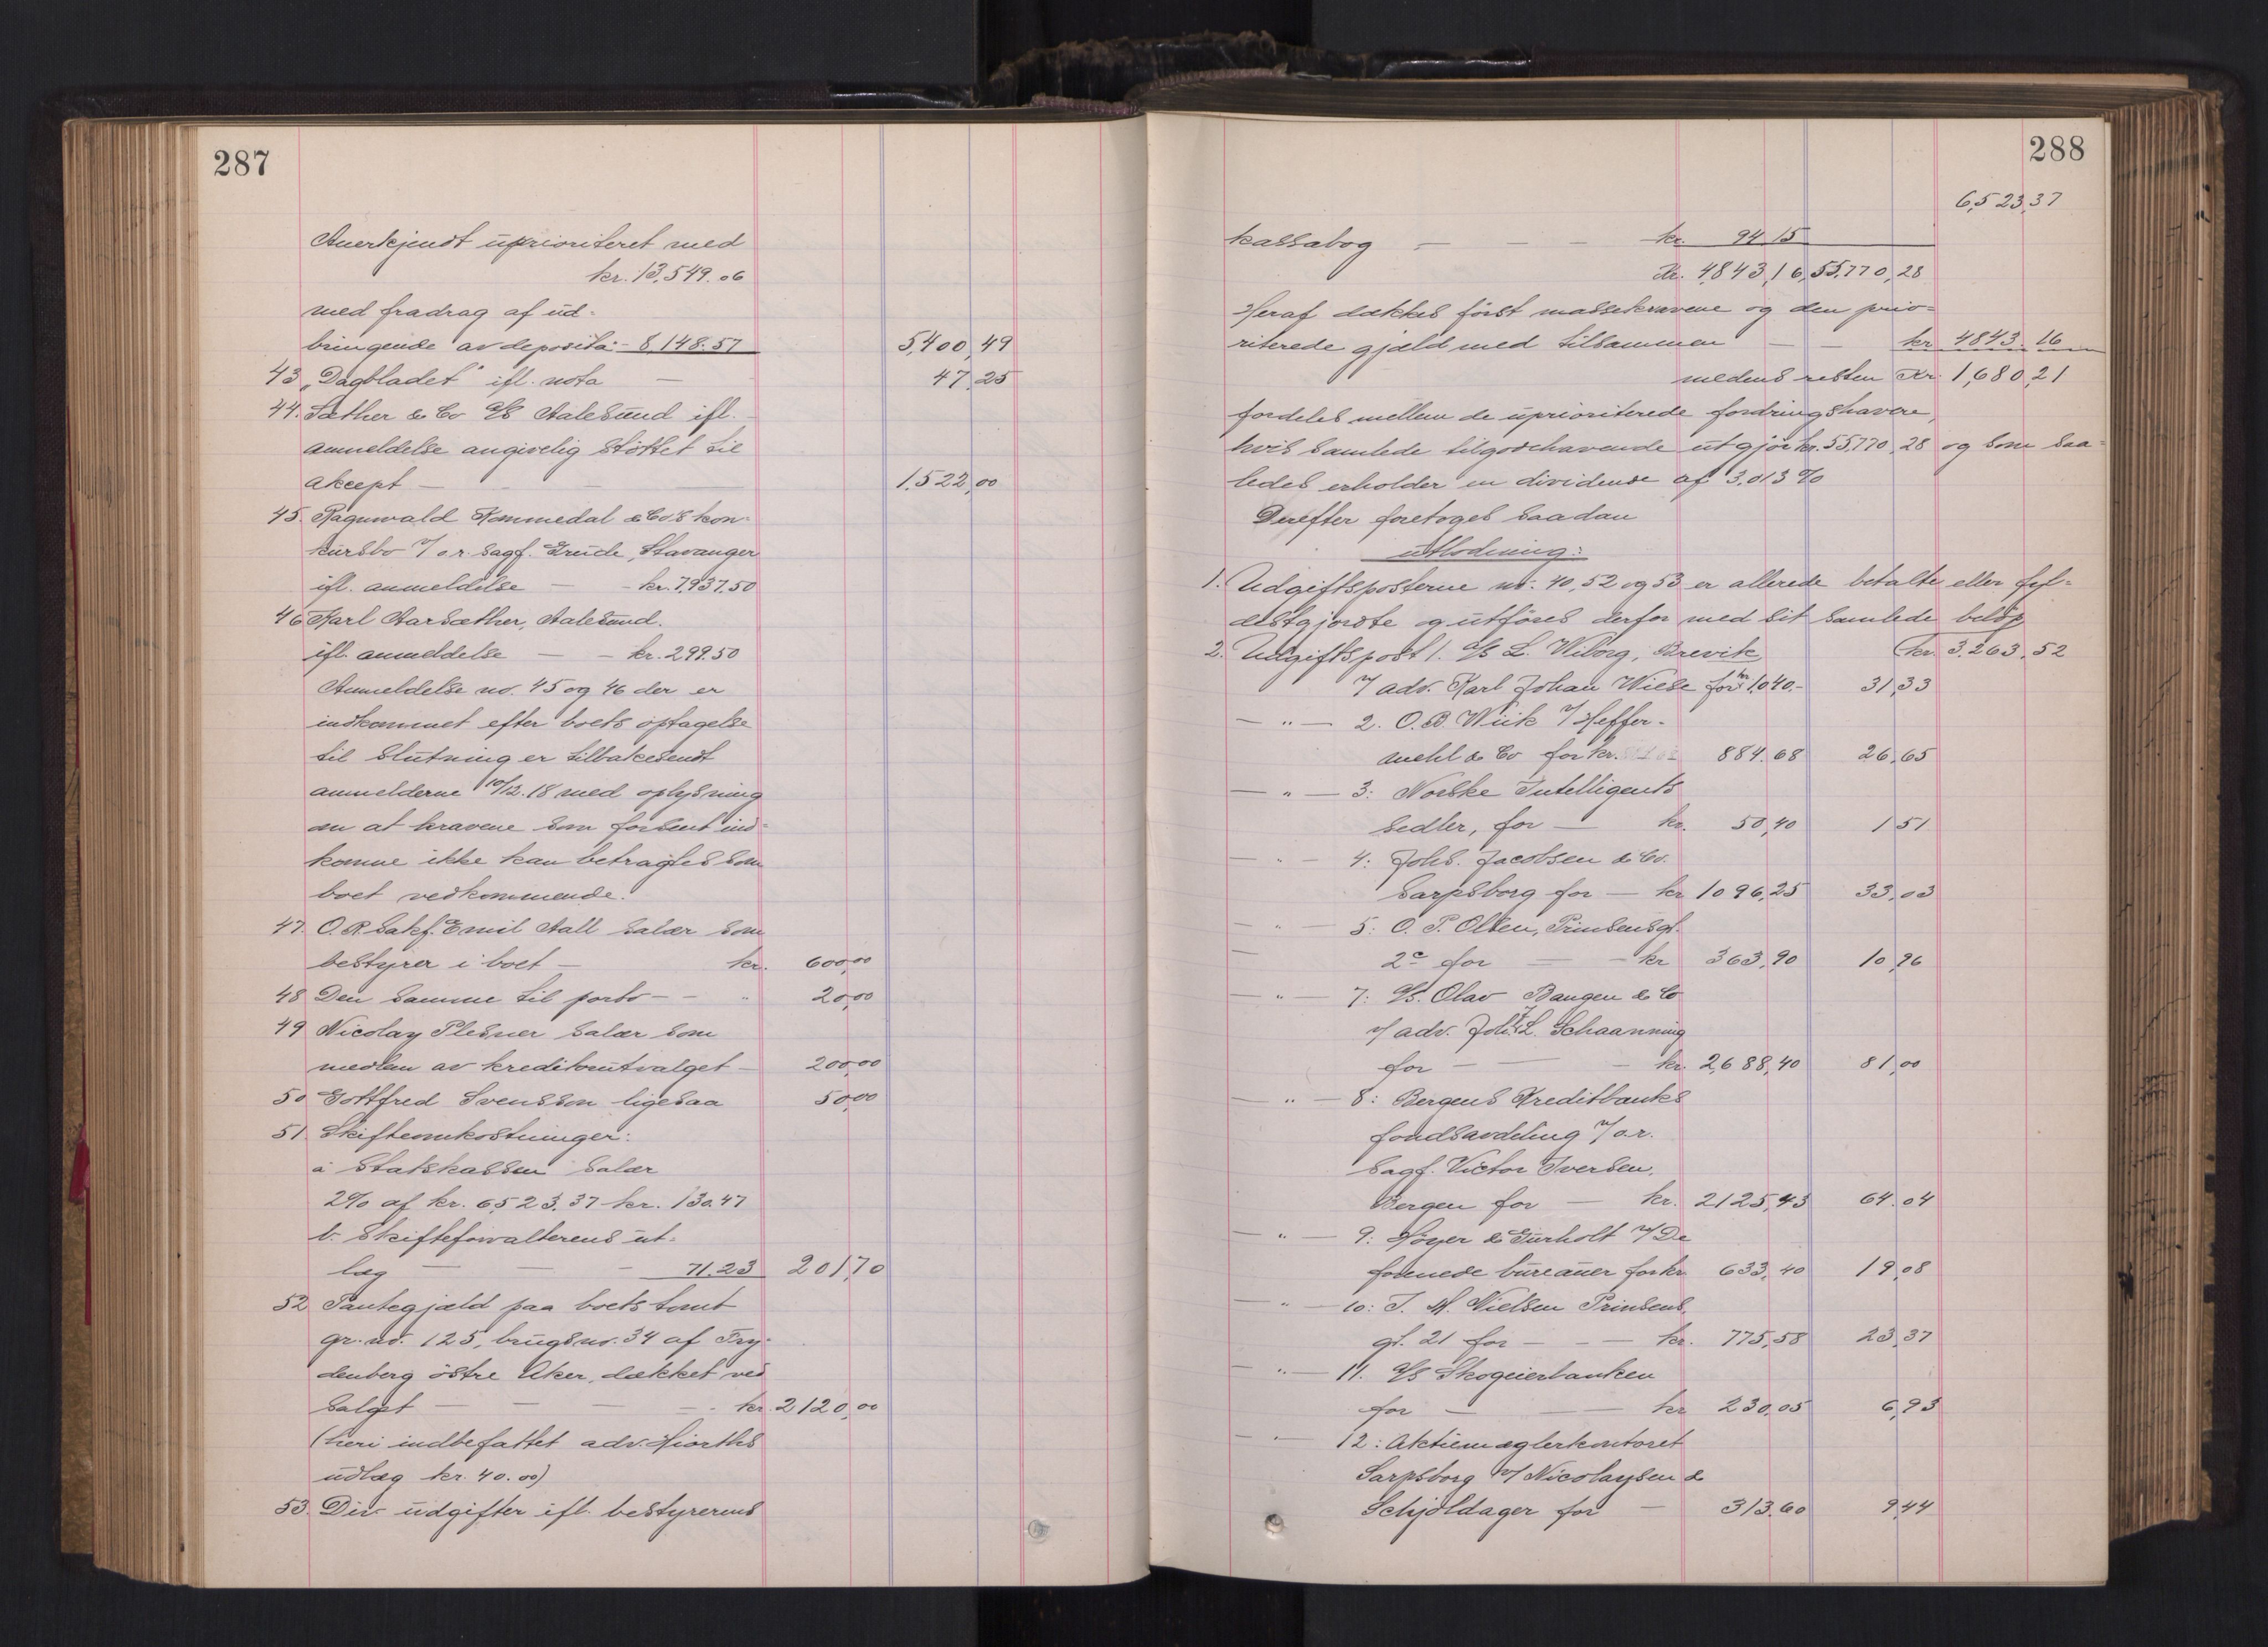 287
Anerkjendt uprioriteret med
kr. 13,549.06
med fradrag af ud-
bringende av deposita - 8,148.57 5,400,49
43 „Dagbladet" ifl. nota — 47,25
44. Sæther & Co A/S Aalesund ifl.
anmeldelse angivelig støttet til
akcept — — — 1,522,00
45. Ragnwald Kommedal & Co's kon-
kursbo v/ o.r. sagf. Grude, Stavanger
ifl. anmeldelse — - kr. 7,937.50
46 Karl Aarsæther, Aalesund.
ifl. anmeldelse — - kr. 299.50
Anmeldelse no. 45 og 46 der er
indkommet efter boets optagelse
til slutning er tilbakesendt
anmelderne 10/12.18 med oplysning
om at kravene som forsent ind-
komne ikke kan betragtes som
boet vedkommende.
47. O.R. Sakf. Emil Aall salær som
bestyrer i boet — kr. 600,00
48 Den samme til porto - - " 20,00
49 Nicolay Plesner salær som
medlem av kreditorutvalget — 200,00
50 Gottfred Svensson ligesaa 50,00
51. Skifteomkostninger:
a Statskassen salær
2% af kr. 6523.37 - kr. 130.47
b. Skifteforvalterens ut-
læg — — - 71.23 201,70
52 Pantegjæld paa boets tomt
gr. no. 125, brugsno. 34 af Fry-
denberg östre Aker, dækket ved
salget — — — - kr. 2120,00
(heri indbefattet adv. Hiorths
udlæg kr. 40.00)
53. Div. udgifter ifl. bestyrerens
288
6,523,37
kassabog — — - kr. 94 15
Kr. 4,843,16, 55,770,28
Heraf dækkes först massekravene og den prio-
riterede gjæld med tilsammen — — kr. 4843.16
medens resten Kr. 1,680,21
fordeles mellem de uprioriterede fordringshavere,
hvis samlede tilgodehavende utgjör kr. 55,770,28 og som saa-
ledes erholder en dividende af 3.013 %
Derefter foretoges saadan
utlodning:
1. Udgiftsposterne no. 40, 52 og 53 er allerede betalte eller fyl-
destgjordte og utföres derfor med sit samlede belöp
kr. 3,263,52
2. Udgiftspost 1. A/S L. Wiborg, Brevik
v/ adv. Karl Johan Wiese for kr. 1,040.- 31,33
— " — 2. O.B. Wiik v/ Heffer-
mehl & Co for kr. 884.68 26,65
— " — 3: Norske Intelligents
sedler, for — kr. 50,40 1 51
— " — 4: Johs. Jacobsen & Co.
Sarpsborg for — kr 1096,25 33,03
— " — 5: O. P. Olsen, Prinsensgt.
2c for — - kr 363,90 10,96
— " — 7: A/S. Olav Bangen & Co
v/ adv. Joh. L. Schaanning
for — — - kr. 2,688,40 81,00
— " — 8: Bergens Kreditbanks
fondsavdeling v/ o.r.
sagf. Victor Iversen,
Bergen for — kr. 2125,43 64.04
— " — 9: Höyer & Gurholt v/ De
forenede bureauer for kr. 633,40 19,08
— " — 10: J. M. Nielsen Prinsens
gt. 21 for — - — kr. 775,58 23,37
— " — 11. A/S Skogeierbanken
for — — kr 230,05 6,93
— " — 12: Aktiemæglerkontoret
Sarpsborg v/ Nicolaysen &
Schjöldager for — 313.60 9,44